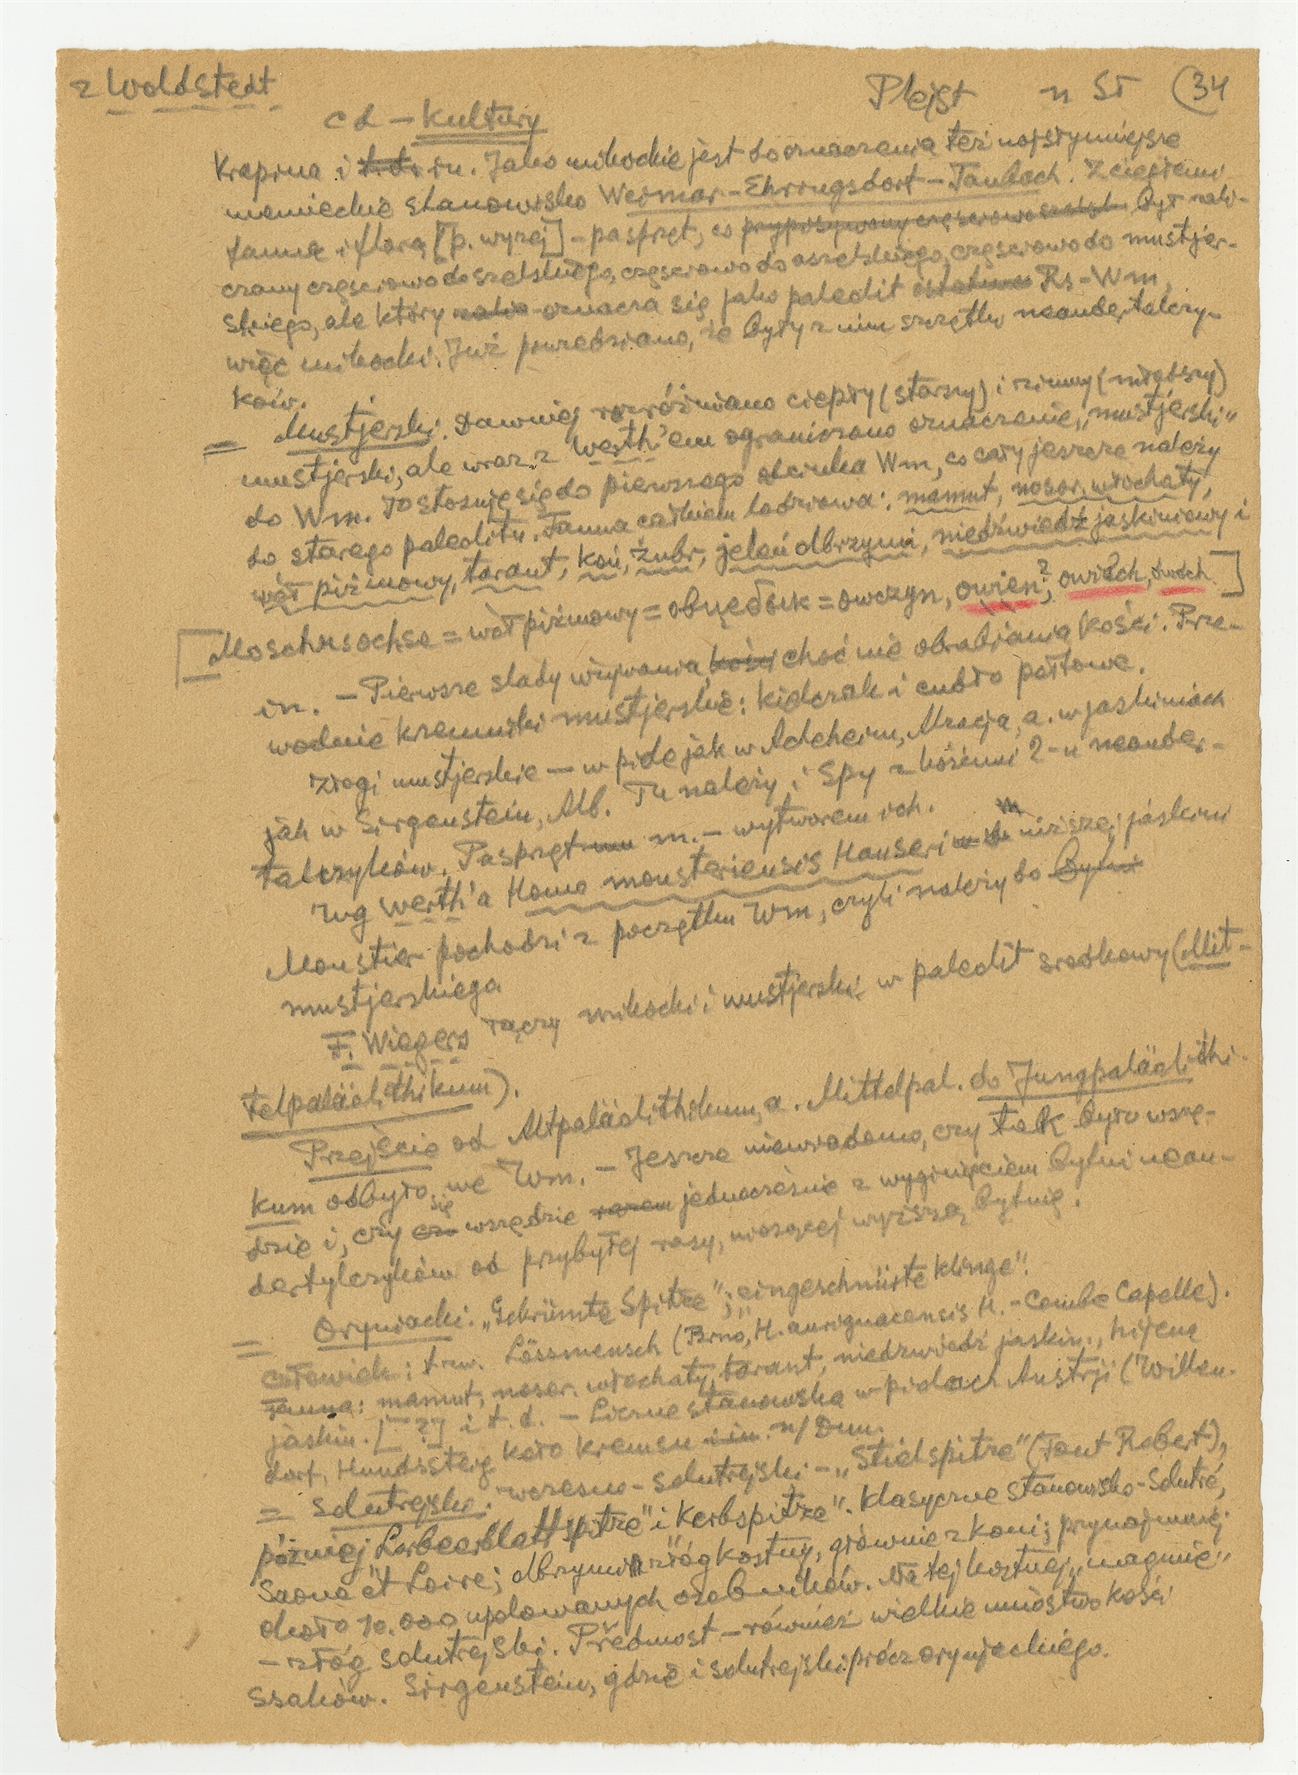 z Woldstedt
Plejst n ST (34
cd – kultury
Krapina i in. Jako mikockie jest do oznaczenia też najsłynniejsze
niemieckie stanowisko Weimar–Ehringsdorf–Taubach. Z ciepłemi
fauną i florą [p. wyżej] – pasprzęt, co przypisywany częściowo był zali-
czany częściowo do szelskiego, częściowo do aszelskiego, częściowo do mustjer-
skiego, ale który oznacza się jako paleolit Rs–Wm,
więc mikocki. Już powiedziano, że były z nim szczątki neandertalczy-
ków.
= Mustjerski. Dawniej rozróżniano ciepły (starszy) i zimny (młodszy)
mustjerski, ale wraz z Werth'em ograniczono oznaczenie „mustjerski"
do Wm. To stosuje się do pierwszego odcinka Wm, co cały jeszcze należy
do starego paleolitu. Fauna całkiem lodziowa: mamut, nosor. włochaty,
wół piżmowy, tarant, koń, żubr, jeleń olbrzymi, niedźwiedź jaskiniowy i
[Moschusochse = wół piżmowy = obrzędsk = owczyn, owień?, owiech, owoch]
in. – Pierwsze ślady używania, choć nie obrabiania kości. Prze-
wodnie krzemniki mustjerskie: kielczak i cudło połłowe.
Złogi mustjerskie — w pide jak w Acheheim, Alzacja, a. w jaskiniach
jak w Sirgenstein, Alb. Tu należy i Spy z kośćmi 2-u neander-
talczyków. Pasprzęt m. – wytworem ich.
Wg Werth'a Homo mousteriensis Hauseri w niższej jaskini
Moustier pochodzi z początku Wm, czyli należy do
mustjerskiego
F. Wiegers łączy mikocki i mustjerski w paleolit środkowy (Mit-
telpaläolithikum).
Przejście od Altpaläolithikum, a. Mittelpal. do Jungpaläolithi-
kum odbyło się we Wm. – Jeszcze niewiadomo, czy tak było wszę-
dzie i, czy wszędzie jednocześnie z wyginięciem bytni nean-
dertylczyków od przybyłej rasy, niosącej wyższą bytnię.
= Oryniacki. „Gekrümte Spitze"; „eingeschnürte Klinge".
Człowiek: t.zw. Lössmensch (Brno, H. aurignacensis H. – Combe Capelle).
Fauna: mamut, nosor. włochaty, tarant, niedźwiedź jaskin., hijena
jaskin. [?] i t.d. – Liczne stanowiska w pidach Austrji (Willen-
dorf, Hundssteig koło Kremsu n/Dun.
= Solutrejski. wczesno-solutrejski – „Stielspitze" (Font Robert),
później „Lorbeerblattspitze" i „Kerbspitze". Klasyczne stanowisko – Solutré,
Saone et Loire; olbrzymi złóg kostny, głównie z koni; przynajmniej
około 10.000 upolowanych osobników. Na tej kostnej „magmie"
– złóg solutrejski. Předmost – również wielkie mnóstwo kości
ssaków. Sirgenstein, gdzie i solutrejski prócz oryniackiego.